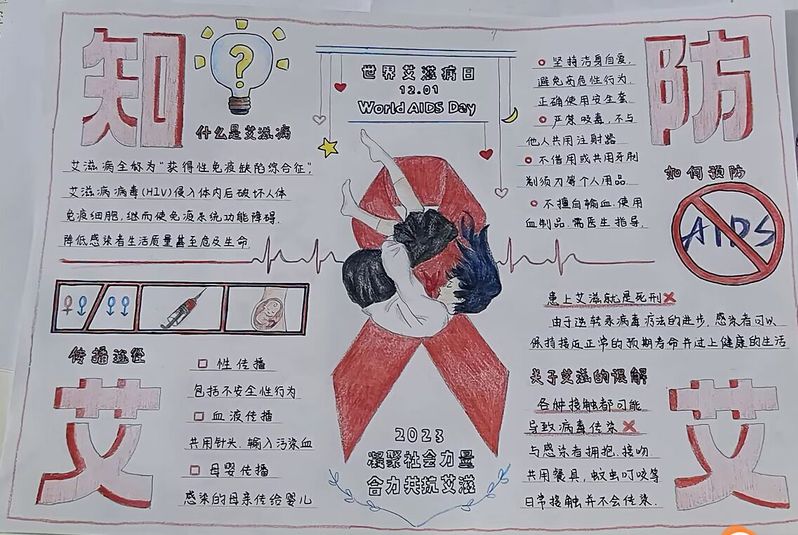 知
?
什么是艾滋病
艾滋病全称为“获得性免疫缺陷综合征”,
艾滋病病毒(HIV)侵入体内后破坏人体
免疫细胞,继而使免疫系统功能障碍.
降低感染者生活质量甚至危及生命
世界艾滋病日
12.01
World AIDS Day
防
坚持洁身自爱,
避免高危性行为,
正确使用安全套
严禁吸毒,不与
他人共用注射器
不借用或共用牙刷
剃须刀等个人用品
不擅自输血.使用
血制品.需医生指导.
如何预防
AIDS
传播途径
性传播
包括不安全性行为
血液传播
共用针头.输入污染血
母婴传播
感染的母亲传给婴儿
艾
患上艾滋就是死刑
由于逆转录病毒疗法的进步,感染者可以
保持接近正常的预期寿命并过上健康的生活
关于艾滋的误解
各种接触都可能
导致病毒传染
与感染者拥抱.接吻.
共用餐具,蚊虫叮咬等
日常接触并不会传染.
艾
2023
凝聚社会力量
合力共抗艾滋